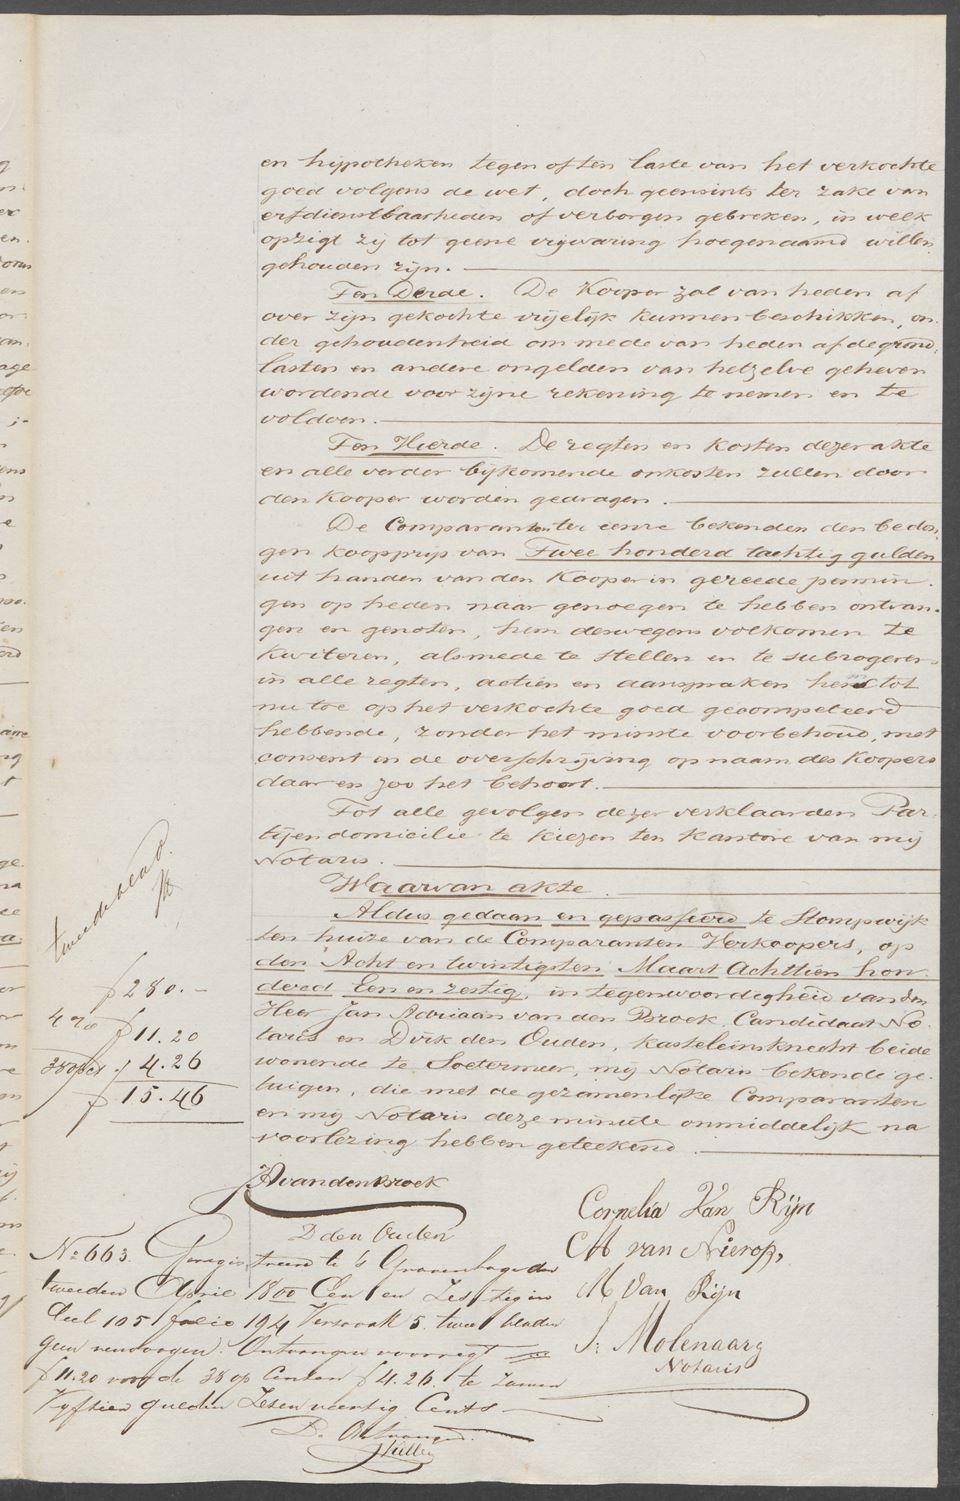 en hypotheken tegen of ten laste van het verkochte
goed volgens de wet, doch geensints ter zake van
erfdienstbaarheden of verborgen gebreken, in welk
opzigt zij tot geene vrijwaring hoegenaamd willen
gehouden zijn.
Ten Derde. De Kooper zal van heden af
over zijn gekochte vrijelijk kunnen beschikken, on-
der gehoudenheid om mede van heden af de grond-
lasten en andere ongelden van hetzelve geheven
wordende voor zijne rekening te nemen en te
voldoen.
Ten Vierde. De regten en kosten dezer akte
en alle verder bijkomende onkosten zullen door
den Kooper worden gedragen.
De Comparanten ter eenre bekenden den bedon-
gen koopprijs van Twee honderd tachtig gulden
uit handen van den Kooper in gereede pennin-
gen op heden naar genoegen te hebben ontvan-
gen en genoten, hem deswegens volkomen te
kwiteren, alsmede te stellen en te subrogeren
in alle regten, actien en aanspraken hem tot
nu toe op het verkochte goed gecompeteerd
hebbende, zonder het minste voorbehoud, met
consent in de overschrijving op naam des Koopers
daar en zoo het behoort.
Tot alle gevolgen dezer verklaarden Par-
tijen domicilie te kiezen ten kantore van mij
Notaris.
Waarvan akte.
Aldus gedaan en gepasseerd te Stompwijk
ten huize van de Comparanten Verkoopers, op
den Acht en twintigsten Maart Achttien hon-
derd Een en zestig, in tegenwoordigheid van den
Heer Jan Adriaan van den Broek, Candidaat No-
taris en Dirk den Ouden, kasteleinsknecht beide
wonende te Soetermeer, mij Notaris bekende ge-
tuigen, die met de gezamenlijke Comparanten
en mij Notaris deze minute onmiddelijk na
voorlezing hebben geteekend.
tweede blad
f 280.-
4 % f 11.20
38 opct. " 4.26
f 15.46
JAvandenBroek
D den Ouden
Cornelia Van Rijn
CM van Nierop,
M Van Rijn
J: Molenaar
Notaris
No 663. Geregistreerd te 's Gravenhage den
tweeden April 1800 Een en Zestig in
deel 105 folio 194 Verso vak 5. twee bladen
geen renvooijen. Ontvangen voor regt
f 11.20 voor de 38 op Centen f 4.26. te zamen
Vyftien gulden Zesenveertig Cents
De Ontvanger.